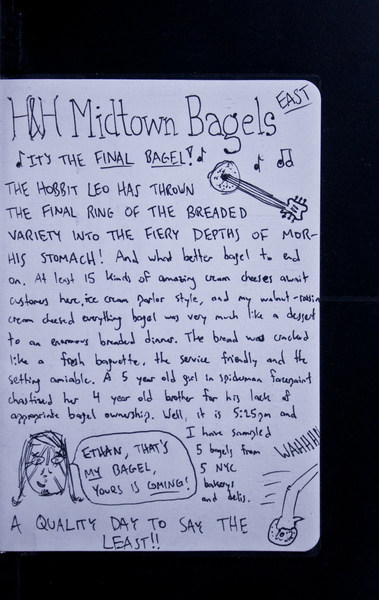 H&H Midtown Bagels EAST
♪ IT'S THE FINAL BAGEL! ♪
THE HOBBIT LEO HAS THROWN
THE FINAL RING OF THE BREADED
VARIETY INTO THE FIERY DEPTHS OF MOR-
HIS STOMACH! And what better bagel to end
on. At least 15 kinds of amazing cream cheeses await
customers here, ice cream parlor style, and my walnut-raisin
cream cheesed everything bagel was very much like a dessert
to an enormous breaded dinner. The bread was cracked
like a fresh baguette, the service friendly and the
setting amiable. A 5 year old girl in spiderman facepaint
chastised her 4 year old brother for his lack of
appropriate bagel ownership. Well, it is 5:25pm and
I have sampled
5 bagels from
5 NYC
bakerys
and delis.
ETHAN, THAT'S
MY BAGEL,
YOURS IS COMING!
WAHHHH
A QUALITY DAY TO SAY THE
LEAST!!